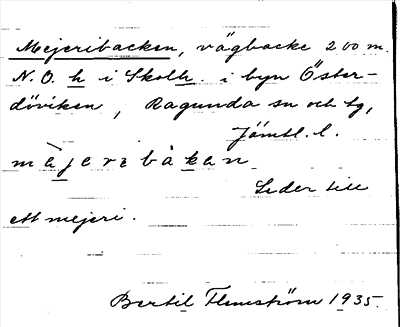 Mejeribacken, vägbacke 200 m.
N.O. h i Skolh. i byn Öster-
döviken, Ragunda sn och tg,
Jämtl. l.
mèjeribàkan
Leder till
ett mejeri.
Bertil Flemström 1935.